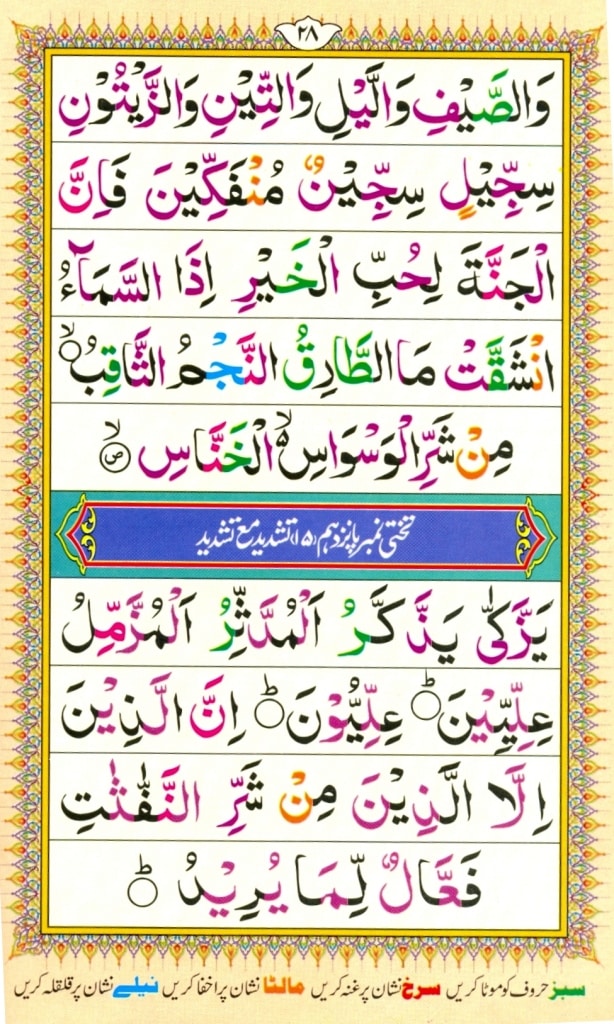 ٢٨
وَالصَّيْفِ وَالَّيْلِ وَالتِّيْنِ وَالزَّيْتُوْنِ
سِجِّيْلٍ سِجِّيْنٌ مُنْفَكِّيْنَ فَاِنَّ
الْجَنَّةَ لِحُبِّ الْخَيْرِ اِذَا السَّمَآءُ
انْشَقَّتْ مَا الطَّارِقُ النَّجْمُ الثَّاقِبُ ۙ
مِنْ شَرِّ الْوَسْوَاسِ ۙ الْخَنَّاسِ ۙ ص
تختی نمبر پانزدہم (۱۵) تشدید مع تشدید
يَزَّكّٰى يَذَّكَّرُ اَلْمُدَّثِّرُ اَلْمُزَّمِّلُ
عِلِّيِّيْنَ ؕ عِلِّيُّوْنَ ؕ اِنَّ الَّذِيْنَ
اِلَّا الَّذِيْنَ مِنْ شَرِّ النَّفّٰثٰتِ
فَعَّالٌ لِّمَا يُرِيْدُ ؕ
سبز حروف کو موٹا کریں سرخ نشان پر غنہ کریں مالٹا نشان پر اخفا کریں نیلے نشان پر قلقلہ کریں